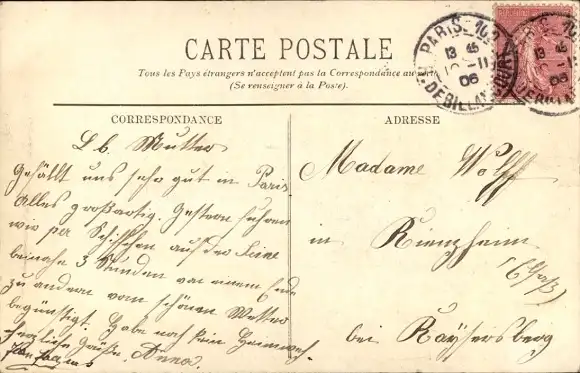 CARTE POSTALE
Tous les Pays étrangers n'acceptent pas la Correspondance au
(Se renseigner à la Poste).
CORRESPONDANCE
Lb. Mutter
Gefällt uns sehr gut in Paris
Alles großartig. Gestern fuhren
wir per Schiffchen auf der Seine
beinahe 3 Stunden von einem Ende
zu andern vom schönen Wetter
begünstigt. Habe noch kein Heimweh.
herzliche Grüße. Anna.
ADRESSE
Madame Wolff
in Kienzheim
(Elsaß)
bei Kaysersberg
PARIS
13 45
11
06
R. DEBILLY
PARIS
13 45
11
06
DEBILLY